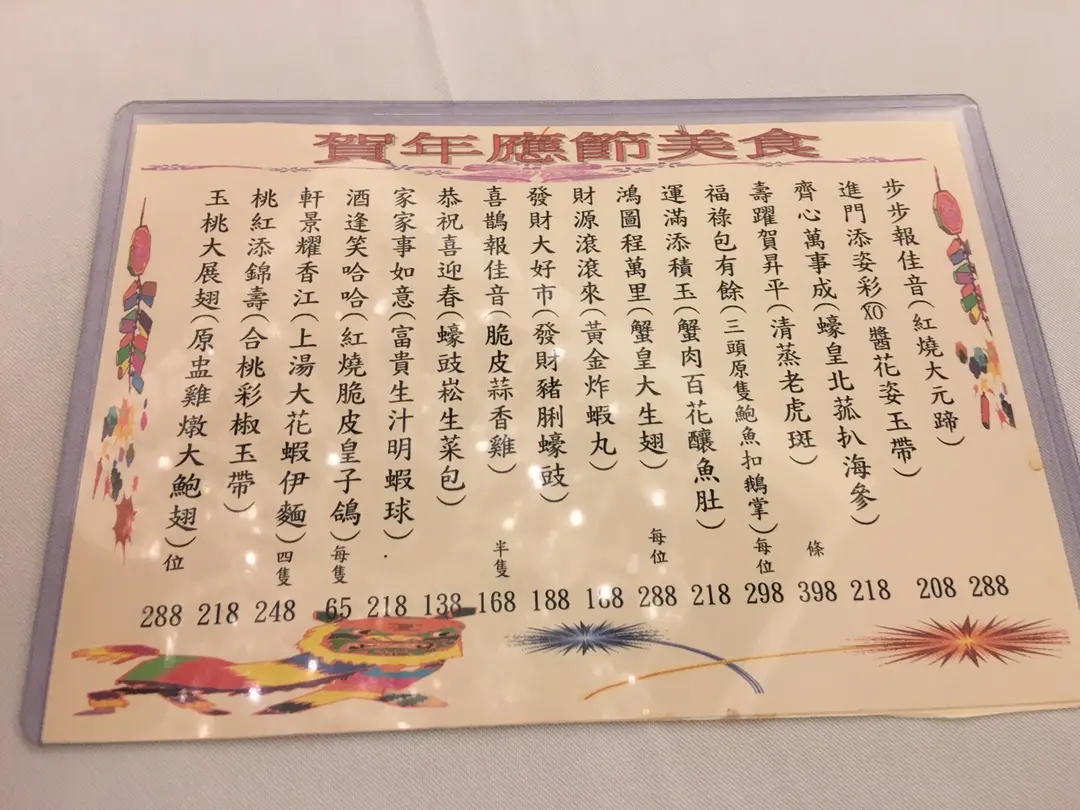 賀年應節美食
步步報佳音(紅燒大元蹄) 288
進門添姿彩(XO醬花姿玉帶) 208
齊心萬事成(蠔皇北菰扒海參) 218
壽躍賀昇平(清蒸老虎斑) 條 398
福祿包有餘(三頭原隻鮑魚扣鵝掌) 每位 298
運滿添積玉(蟹肉百花釀魚肚) 218
鴻圖程萬里(蟹皇大生翅) 每位 288
財源滾滾來(黃金炸蝦丸) 188
發財大好市(發財豬脷蠔豉) 188
喜鵲報佳音(脆皮蒜香雞) 半隻 168
恭祝喜迎春(蠔豉崧生菜包) 138
家家事如意(富貴生汁明蝦球) 218
酒逢笑哈哈(紅燒脆皮皇子鴿) 每隻 65
軒景耀香江(上湯大花蝦伊麵) 四隻 248
桃紅添錦壽(合桃彩椒玉帶) 218
玉桃大展翅(原盅雞燉大鮑翅) 位 288